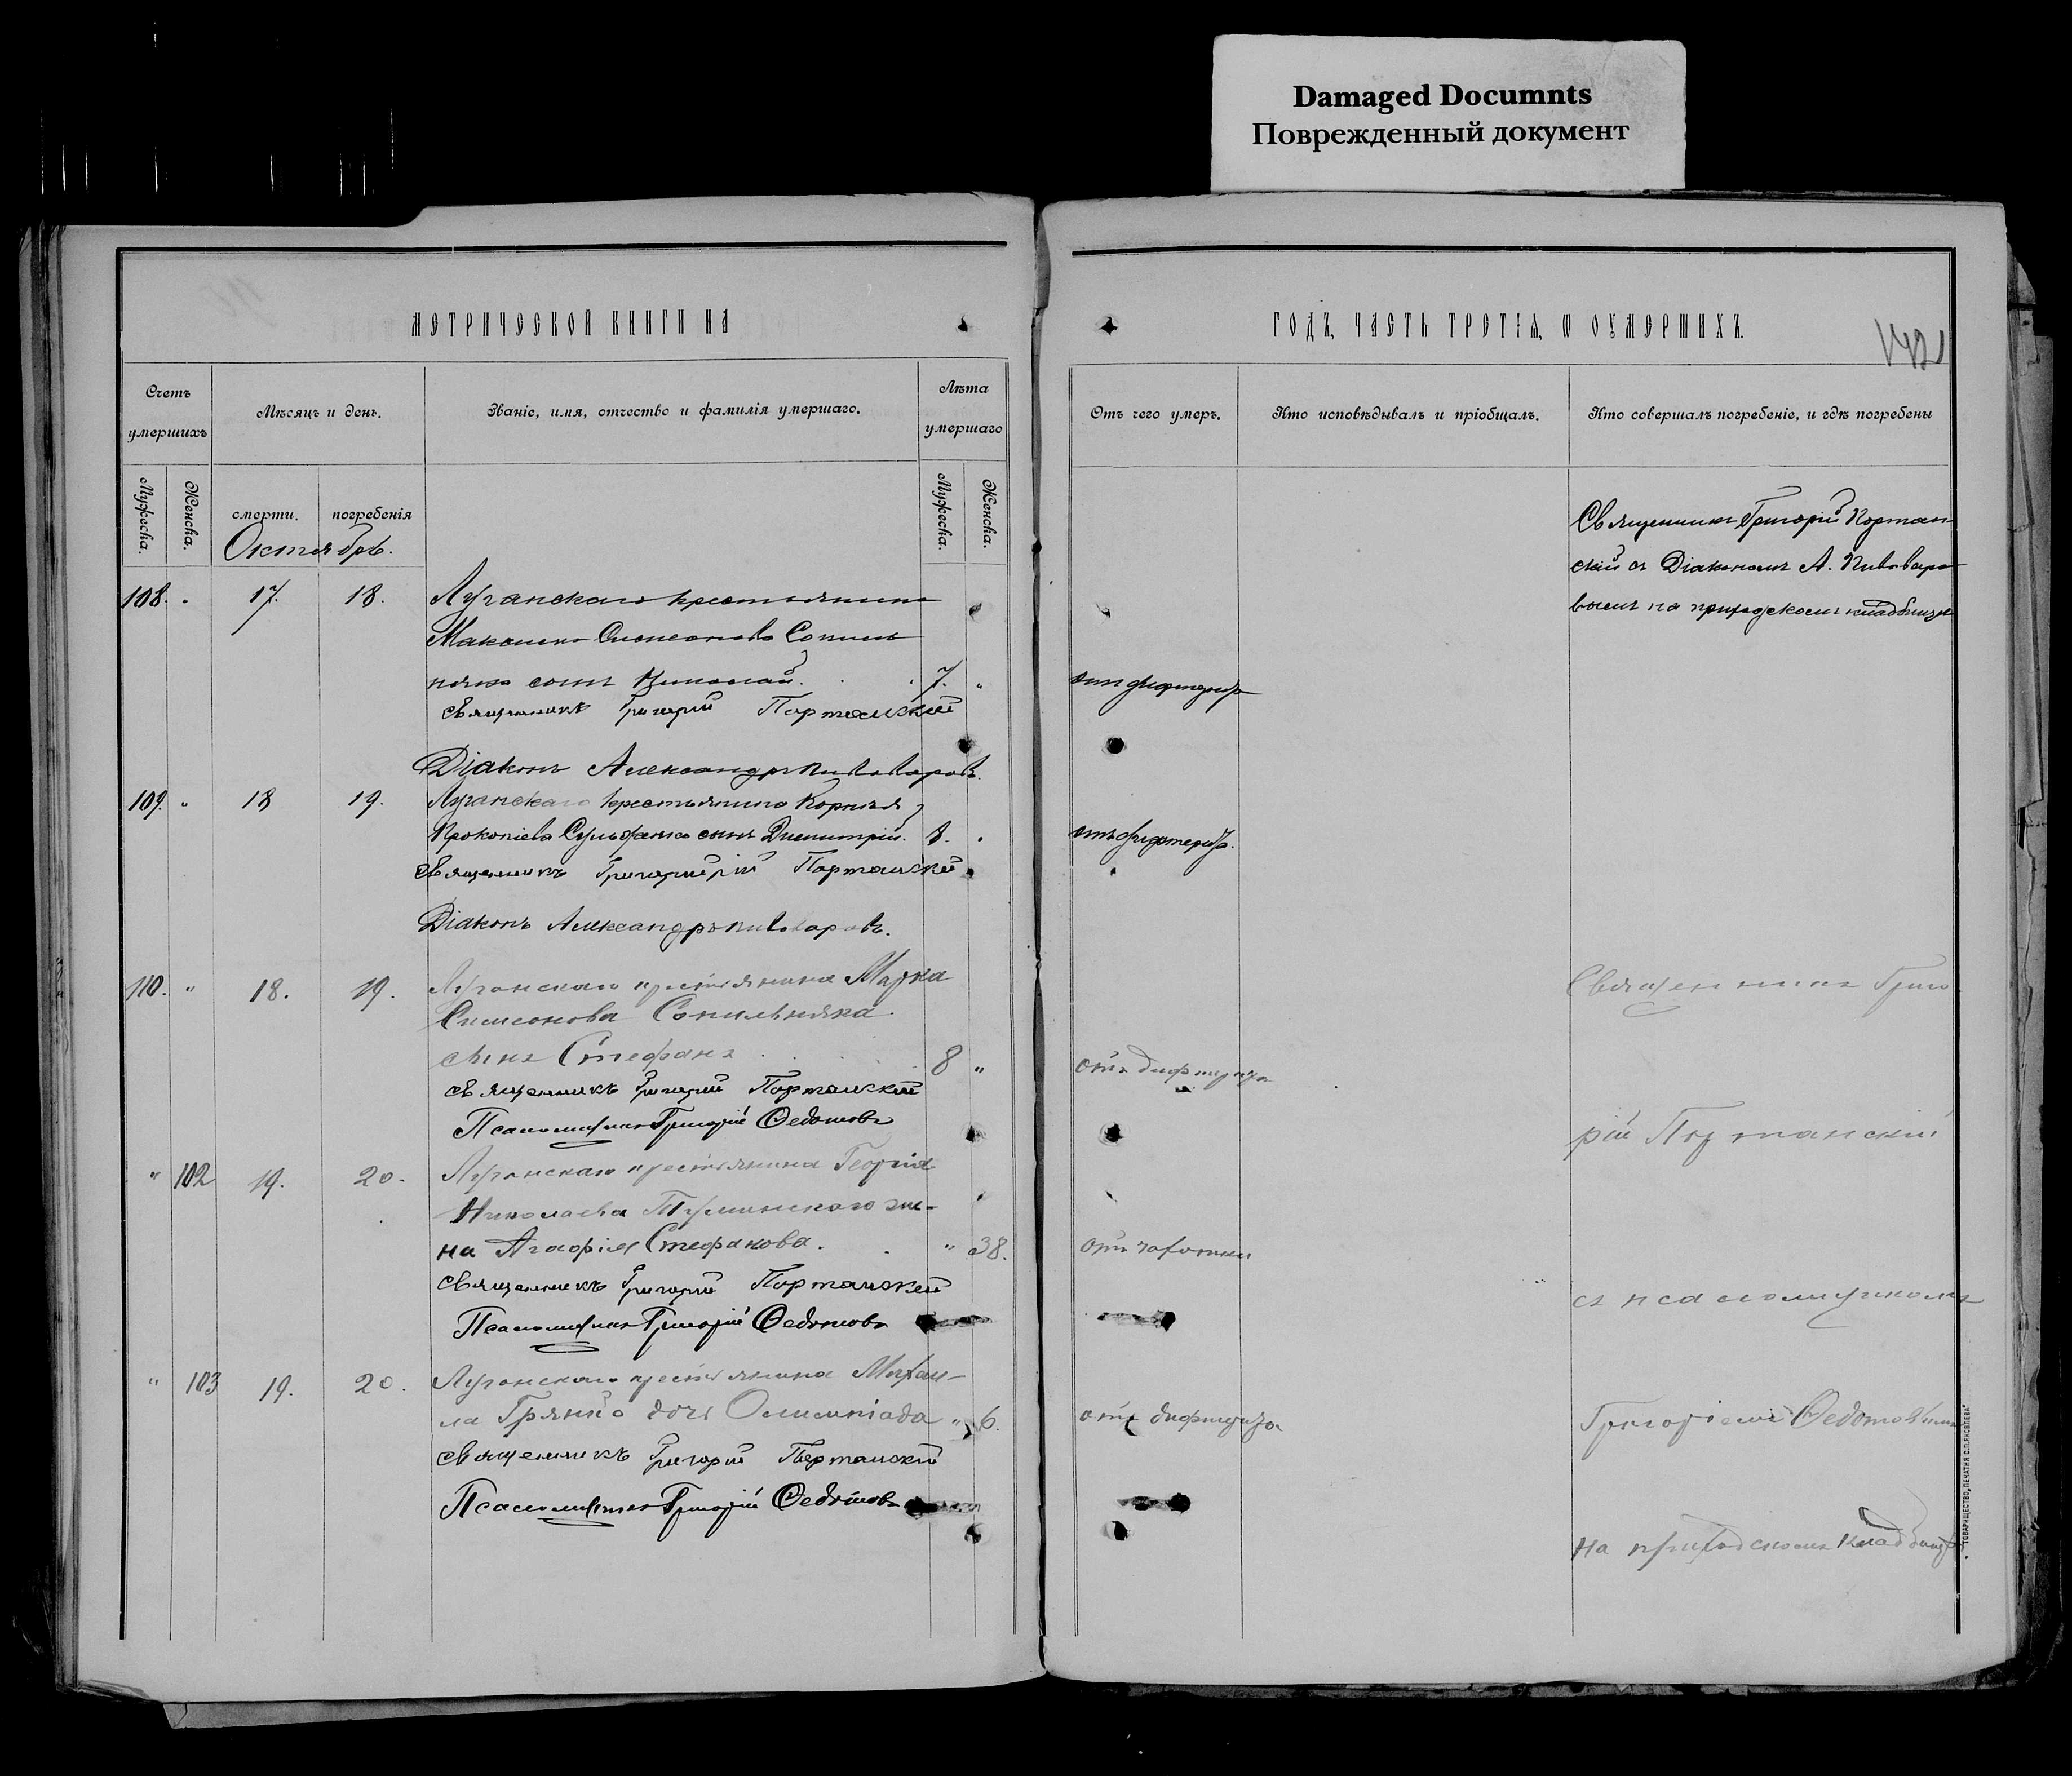 Damaged Documnts
Поврежденный документ
МЕТРИЧЕСКОЙ КНИГИ НА
ГОДЪ, ЧАСТЬ ТРЕТІѦ, Ѡ ОУМЕРШИХЪ.
Счетъ умершихъ
Мѣсяцъ и день.
Званіе, имя, отчество и фамилія умершаго.
Лѣта умершаго
Отъ чего умеръ.
Кто исповѣдывалъ и пріобщалъ.
Кто совершалъ погребеніе, и гдѣ погребены
Мужеска.
Женска.
смерти.
погребенія
Мужеска.
Женска.
Октябрь.
Священникъ Григорій Портан-
скій съ Діакономъ А. Пивоваро-
вымъ на приходскомъ кладбищѣ
108. " 17. 18. Луганскаго крестьянина
Максима Симеонова Сопиль
няка сынъ Николай. 7. " отъ дифтерита
Священникъ Григорій Портанскій
Діаконъ Александръ Пивоваровъ.
109. " 18 19. Луганскаго крестьянина Корнилія
Прокопіева сынъ Димитрій. 8. " отъ дифтерита.
Священникъ Портанскій
Діаконъ Александръ Пивоваровъ.
110. " 18. 19. Луганскаго крестьянина Марка
Симеонова Сопильняка
сынъ Стефанъ 8 " отъ дифтерита
Священникъ Григорій Портанскій
Псаломщикъ Григорій Федотовъ
Священникъ Григо
рій Портанскій
" 102 19. 20. Луганскаго крестьянина Георгія
Николаева же-
на Агафія Стефанова. " 38. отъ чахотки
Священникъ Григорій Портанскій
Псаломщикъ Григорій Федотовъ
съ псаломщикомъ
" 103 19. 20. Луганскаго крестьянина Михаи-
ла дочь Олимпіада " 6. отъ дифтерита
Священникъ Григорій Портанскій
Псаломщикъ Григорій Федотовъ
Григоріемъ Федотовымъ
на приходскомъ кладбищѣ
ТОВАРИЩЕСТВО „ПЕЧАТНЯ С.П.ЯКОВЛЕВА"